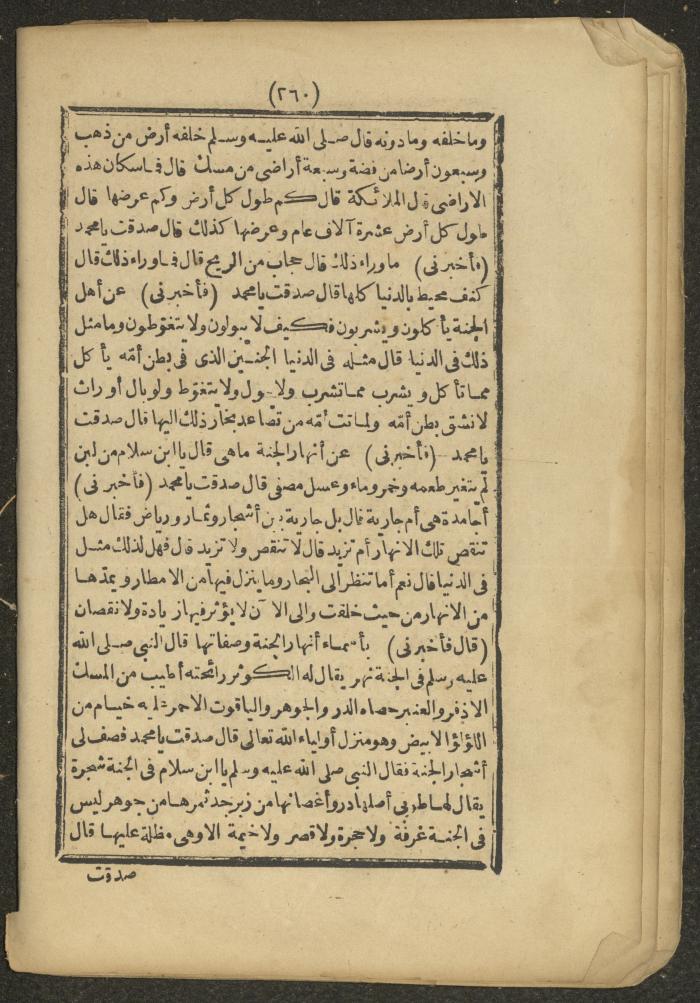 (٢٦٠)
وما خلفه وما دونه قال صلى الله عليه وسلم خلفه أرض من ذهب
وسبعون أرضا من فضة وسبعة أراضى من مسك قال فما سكان هذه
الاراضى قال الملائكة قال كم طول كل أرض وكم عرضها قال
طول كل أرض عشرة آلاف عام وعرضها كذلك قال صدقت يا محمد
(فأخبرنى) ما وراء ذلك قال حجاب من الريح قال فما وراء ذلك قال
كنف محيط بالدنيا كلها قال صدقت يا محمد (فأخبرنى) عن أهل
الجنة يأكلون ويشربون فكيف لا يبولون ولا يتغوّطون وما مثل
ذلك فى الدنيا قال مثله فى الدنيا الجنين الذى فى بطن أمّه يأكل
مما تأكل ويشرب مما تشرب ولا يبول ولا يتغوّط ولو بال أو راث
لانشق بطن أمّه ولماتت أمّه من تصاعد بخار ذلك اليها قال صدقت
يا محمد (فأخبرنى) عن أنهار الجنة ما هى قال يا ابن سلام من لبن
لم يتغير طعمه وخمر وماء وعسل مصفى قال صدقت يا محمد (فأخبرنى)
أجامدة هى أم جارية قال بل جارية بين أشجار وثمار ورياض فقال هل
تنقص تلك الانهار أم تزيد قال لا تنقص ولا تزيد قال فهل لذلك مثل
فى الدنيا قال نعم أما تنظر الى البحار وما ينزل فيها من الامطار ويمدّها
من الانهار من حيث خلقت والى الآن لا يؤثر فيها زيادة ولا نقصان
(قال فأخبرنى) بأسماء أنهار الجنة وصفاتها قال النبى صلى الله
عليه وسلم فى الجنة نهر يقال له الكوثر رائحته أطيب من المسك
الاذفر والعنبر حصاه الدر والجوهر والياقوت الاحمر عليه خيام من
اللؤلؤ الابيض وهو منزل أولياء الله تعالى قال صدقت يا محمد فصف لى
أشجار الجنة فقال النبى صلى الله عليه وسلم يا ابن سلام فى الجنة شجرة
يقال لها طوبى أصلها در وأغصانها من زبرجد ثمرها من جوهر ليس
فى الجنة غرفة ولا حجرة ولا قصر ولا خيمة الا وهى مظلة عليها قال
صدقت